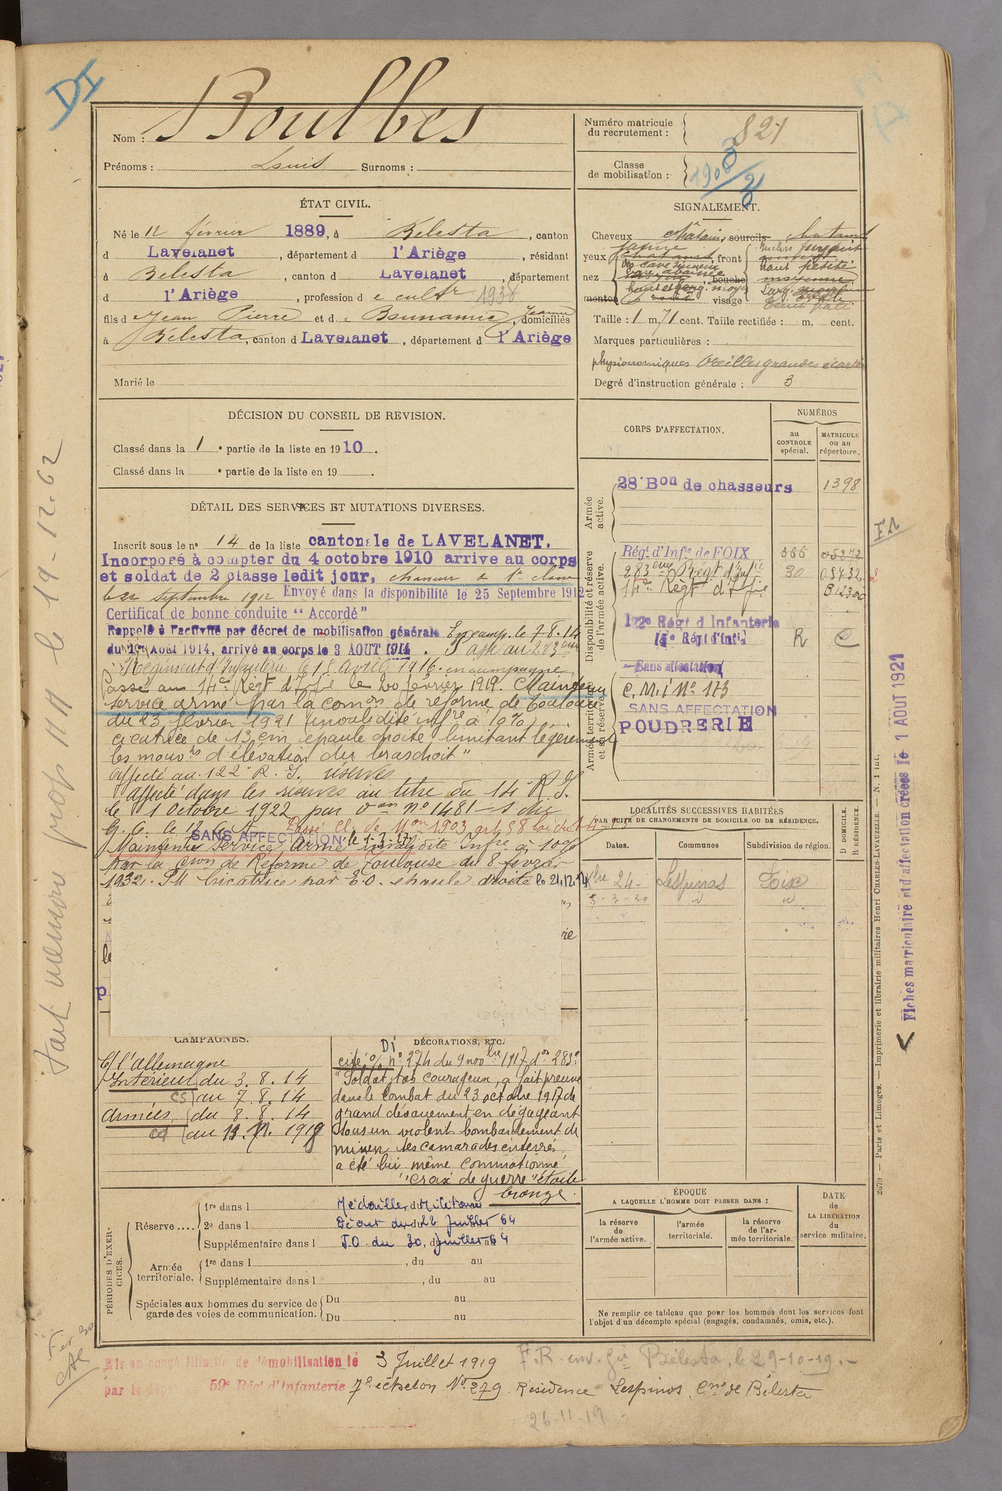 DI
Nom : Boulbès
Prénoms : Louis Surnoms :
ÉTAT CIVIL.
Né le 12 février 1889, à Belesta, canton
d Lavelanet, département d l'Ariège, résidant
à Belesta, canton d Lavelanet, département
d l'Ariège, profession de cultr 1938
fils de Jean Pierre et de Jeanne, domiciliés
à Bélesta, canton d Lavelanet, département d l'Ariège
Marié le
DÉCISION DU CONSEIL DE REVISION.
Classé dans la 1 e partie de la liste en 1910.
Classé dans la e partie de la liste en 19 .
DÉTAIL DES SERVICES ET MUTATIONS DIVERSES.
Inscrit sous le n° 14 de la liste cantonale de LAVELANET.
Incorporé à compter du 4 octobre 1910 arrive au corps
et soldat de 2 classe ledit jour, chasseur de 1e classe
le septembre 1912 Envoyé dans la disponibilité le 25 Septembre 1912
Certificat de bonne conduite "Accordé"
Rappelé à l'activité par décret de mobilisation générale En camp. le 7.8.14
du 1er Août 1914, arrivé au corps le 3 AOUT 1914. Passé au 283eme
Régiment d'Infanterie le 15 Avril 1916. en campagne
Passé au 14e Régt d'Infie le 20 février 1919. Maintenu
service armé par la comon de réforme de Toulouse
du 23 février 1921 invalidité infre à 10%
cicatrice de 13 cm, épaule droite limitant légèrement
les mouvts d'élévation du bras droit"
affecté au 122e R.I. réserves
affecté dans les réserves au titre du 14e R.I.
le 1 octobre 1922 par
SANS AFFECTATION
Maintenu Service Armé invalidité Infre à 10%
par la Cmon de Réforme de Toulouse du 8 février
1932. P.M. Cicatrice par E.O. épaule droite le 21.12.
CAMPAGNES.
C/ l'Allemagne
Intérieur du 3.8.14
CS au 7.8.14
Armées du 8.8.14
CD au 11.11.1918
DÉCORATIONS, ETC.
DI
cité o/ n° 274 du 9 novbre 1917 don 283e
"Soldat très courageux, a fait preuve
dans le combat du 23 octobre 1917 de
grand dévouement en dégageant
sous un violent bombardement de
minen ses camarades enterrés,
a été lui même commotionné"
"Croix de guerre" étoile
bronze.
PÉRIODES D'EXERCICES.
Réserve.... 1re dans l Médaille Militaire
2e dans l Décret du 22 Juillet 64
Supplémentaire dans l J.O. du 30 juillet 64
Armée territoriale. 1re dans l , du au
Supplémentaire dans l , du au
Spéciales aux hommes du service de garde des voies de communication. Du au
Du au
Mis en congé illimité de démobilisation le 3 Juillet 1919
par le dépôt 59e Rég. d'Infanterie 7e échelon N° 279 Résidence Lespinos Cne de Bélesta
Bélesta, le 29-10-19.
26.11.19
Numéro matricule du recrutement : 821
Classe de mobilisation : 1908
SIGNALEMENT.
Cheveux châtain, sourcils
yeux front
nez bouche
menton visage
Taille : 1 m. 71 cent. Taille rectifiée : m. cent.
Marques particulières :
physionomiques Oreilles grandes écartées
Degré d'instruction générale : 3
CORPS D'AFFECTATION.
NUMÉROS
au CONTROLE spécial.
MATRICULE ou au répertoire.
Armée active.
28e Bon de chasseurs 1398
Disponibilité et réserve de l'armée active.
Rég. d'Infie de FOIX
283eme Régt d'Infie 30
14e Régt d'Infie
122e Régt d'Infanterie
14e Régt d'Infie R C
Sans affectation
Armée territoriale et sa réserve.
C.M.I N° 173
SANS AFFECTATION
POUDRERIE
LOCALITÉS SUCCESSIVES HABITÉES
PAR SUITE DE CHANGEMENTS DE DOMICILE OU DE RÉSIDENCE.
Dates. Communes Subdivision de région. D DOMICILE. R RÉSIDENCE.
24 Lespinas Foix
ÉPOQUE
A LAQUELLE L'HOMME DOIT PASSER DANS :
la réserve de l'armée active.
l'armée territoriale.
la réserve de l'armée territoriale.
DATE de LA LIBÉRATION du service militaire.
Ne remplir ce tableau que pour les hommes dont les services font
l'objet d'un décompte spécial (engagés, condamnés, omis, etc.).
Fiches matriculaire et d'affectation créées le 1 AOUT 1921
2079 — Paris et Limoges. — Imprimerie et librairie militaires Henri CHARLES-LAVAUZELLE. — N. 1 int.
le 19-12-62